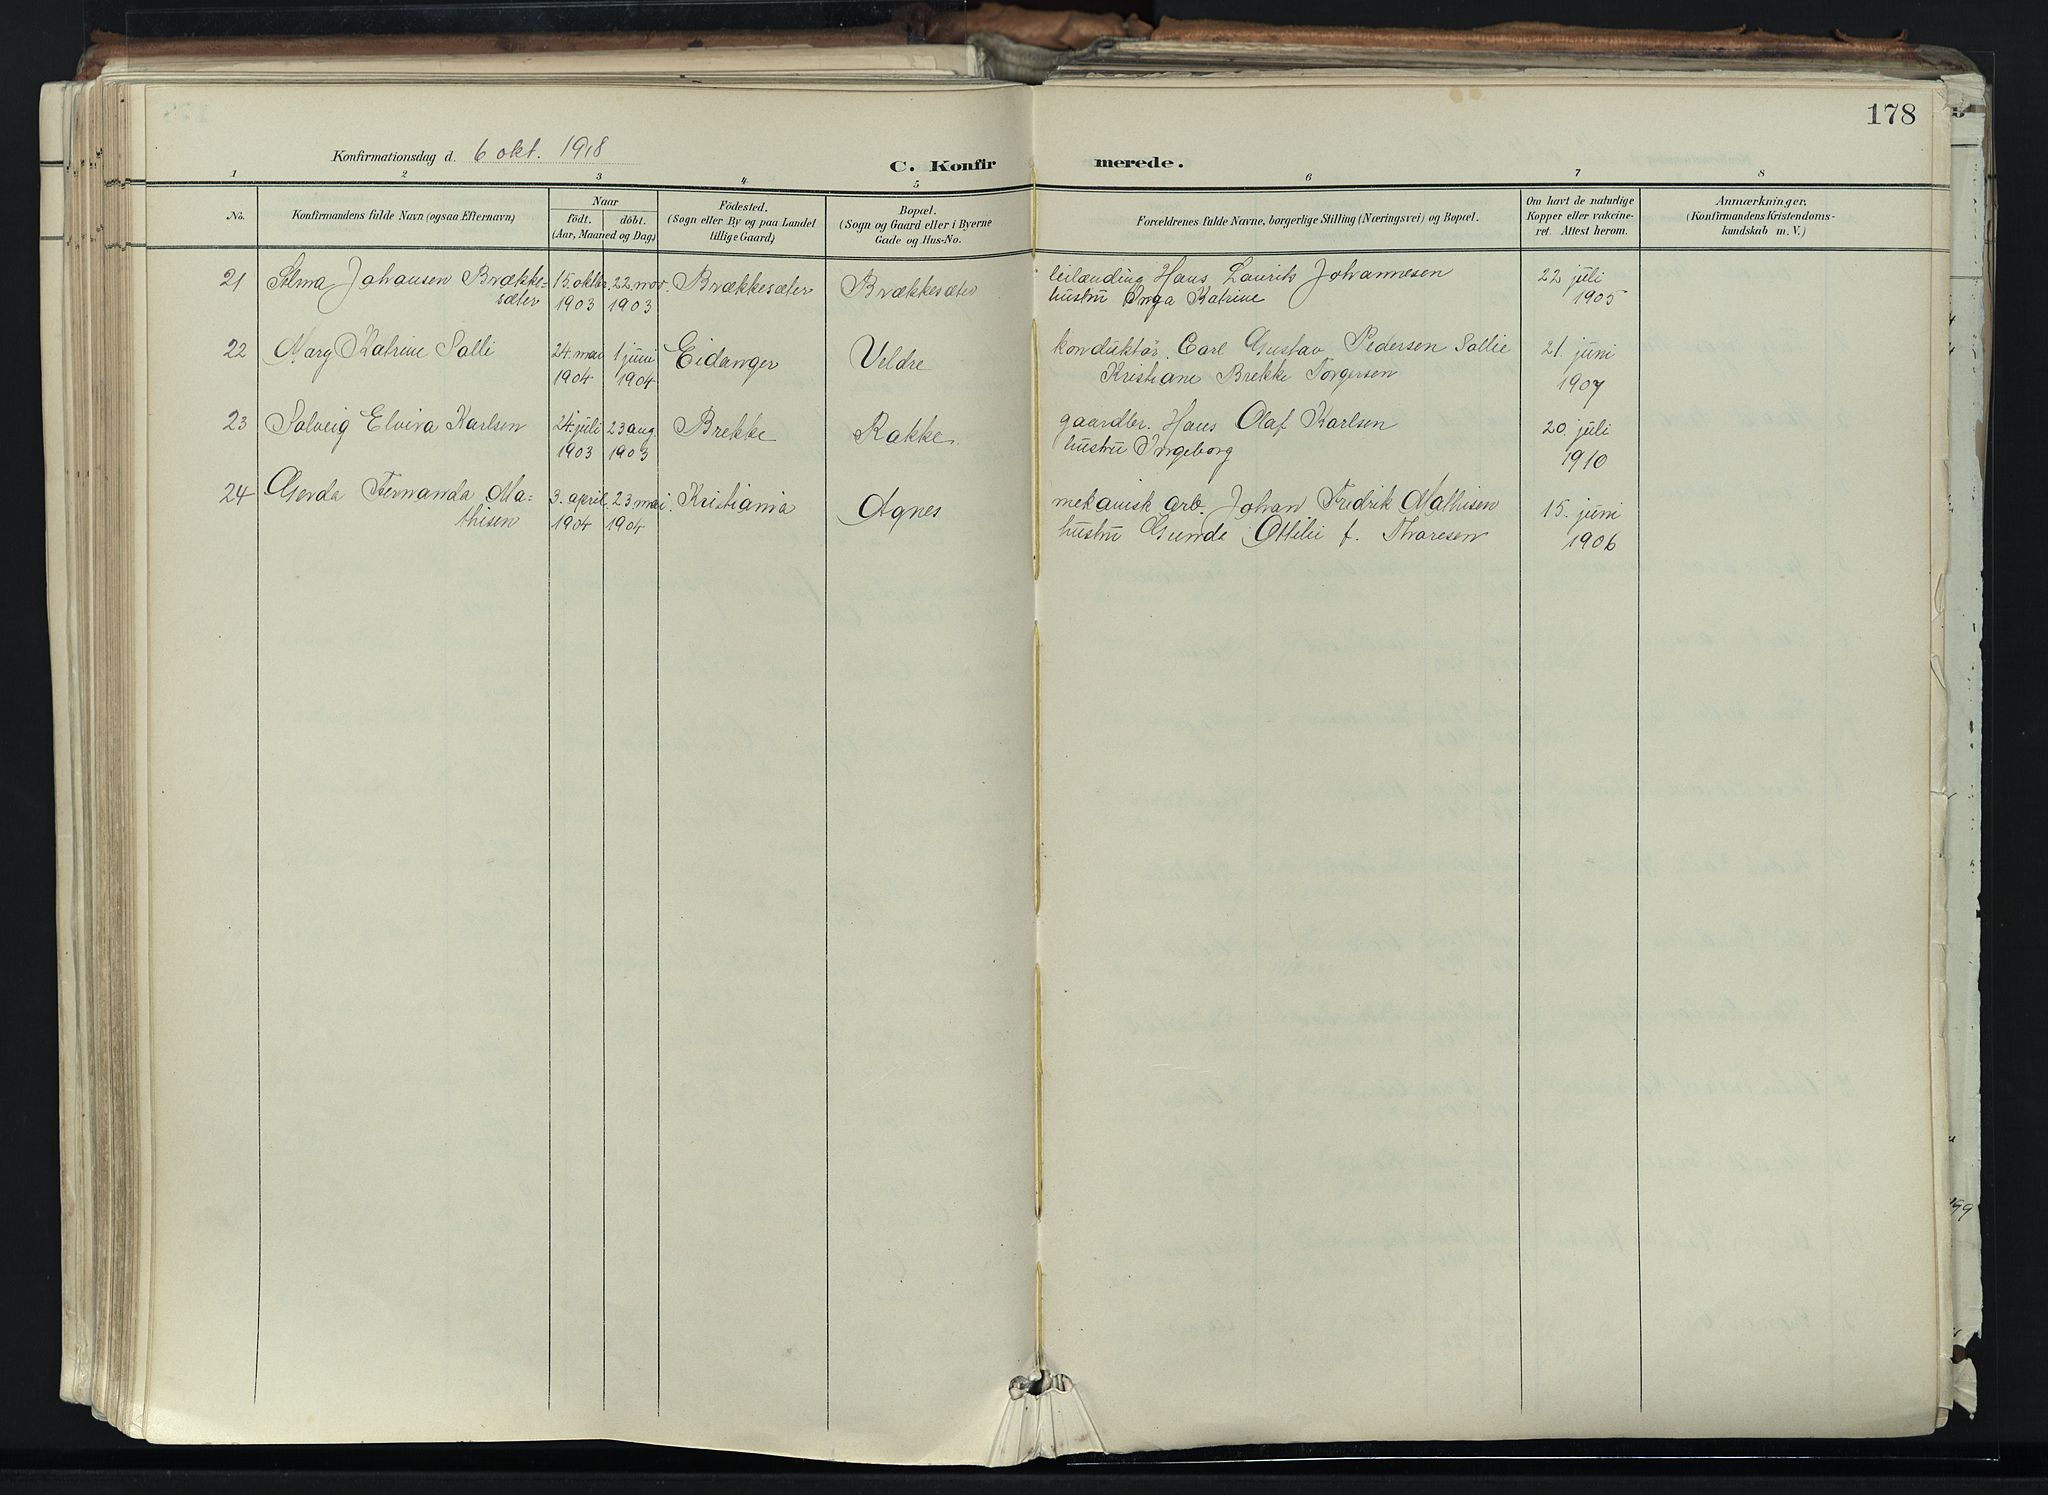 178
Konfirmationsdag d. 6 okt. 1918
C. Konfirmerede.
1 2 3 4 5 6 7 8
No. Konfirmandens fulde Navn (ogsaa Efternavn) Naar födt. döbt. (Aar, Maaned og Dag) Födested. (Sogn eller By og paa Landet tillige Gaard) Bopæl. (Sogn og Gaard eller i Byerne Gade og Hus-No. Forældrenes fulde Navne, borgerlige Stilling (Næringsvei) og Bopæl. Om havt de naturlige Kopper eller vakcineret. Attest herom. Anmærkninger. (Konfirmandens Kristendomskundskab m. V.)
21 Selma Johansen Brække- 15. oktbr. 22. nov. Brækkesæter Brækkesæter leilænding Hans Laurits Johannesen 22 juli
sæter 1903 1903 hustru Inga Katrine 1905
22 Mary Katrine Solli 24. mai 1 juni Eidanger Veldre konduktör. Carl Gustav Pedersen Sollie 21. juni
1904 1904 Kristiane Brekke Torgersen 1907
23 Solveig Elvira Karlsen 24. juli 23 aug. Brekke Rakke. gaardbr. Hans Olaf Karlsen 20. juli
1903 1903 hustru Ingeborg 1910
24 Gerda Fernanda Ma- 3. april 23 mai. Kristiania Agnes mekanisk arb. Johan Fredrik Mathisen 15. juni
thisen 1904 1904 hustru Gunda Ottilie f. Thoresen 1906